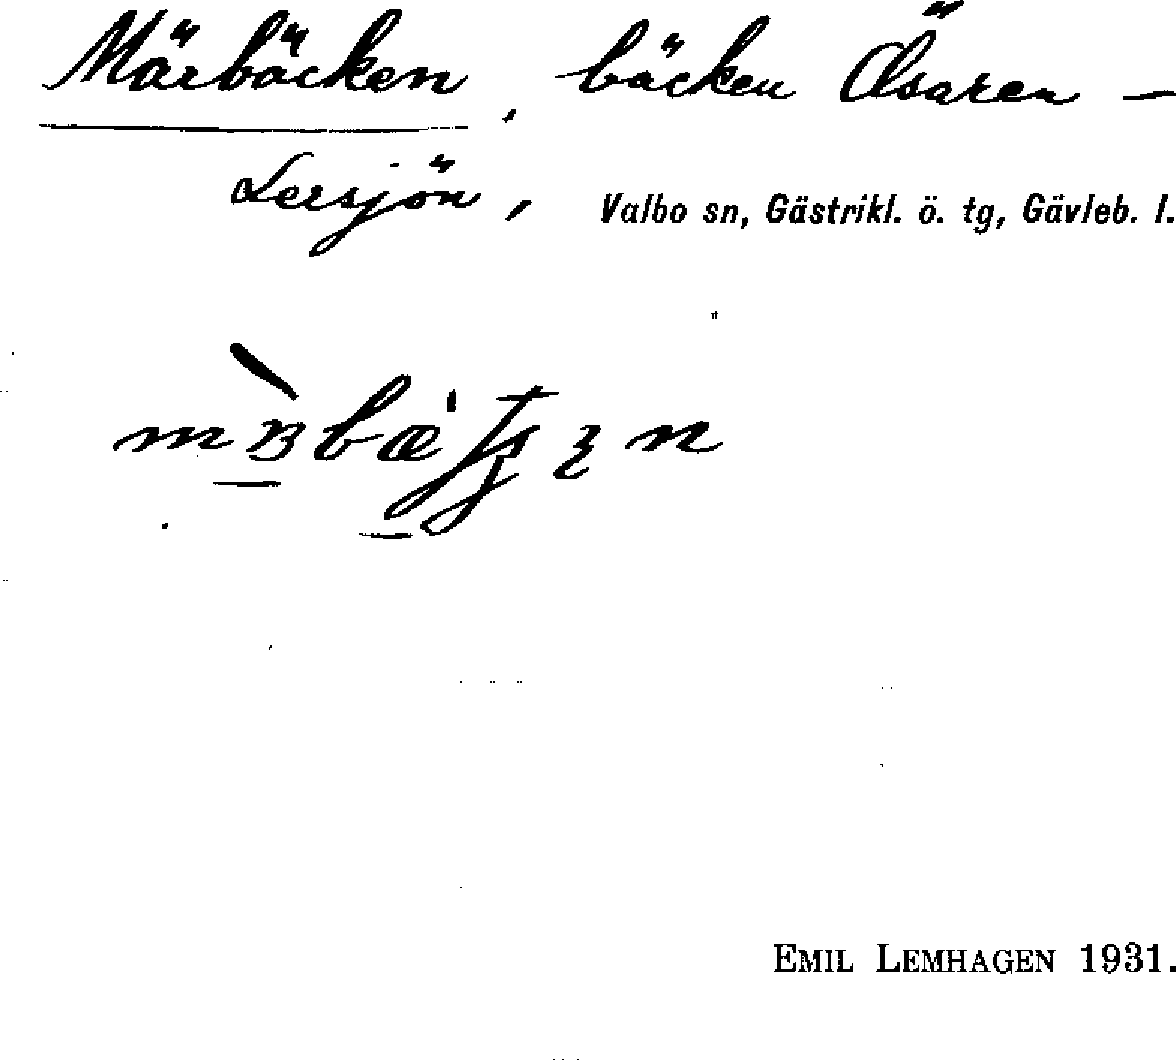 Märbäcken, bäcken Ösaren –
Lersjön, Valbo sn, Gästrikl. ö. tg, Gävleb. l.
EMIL LEMHAGEN 1931.